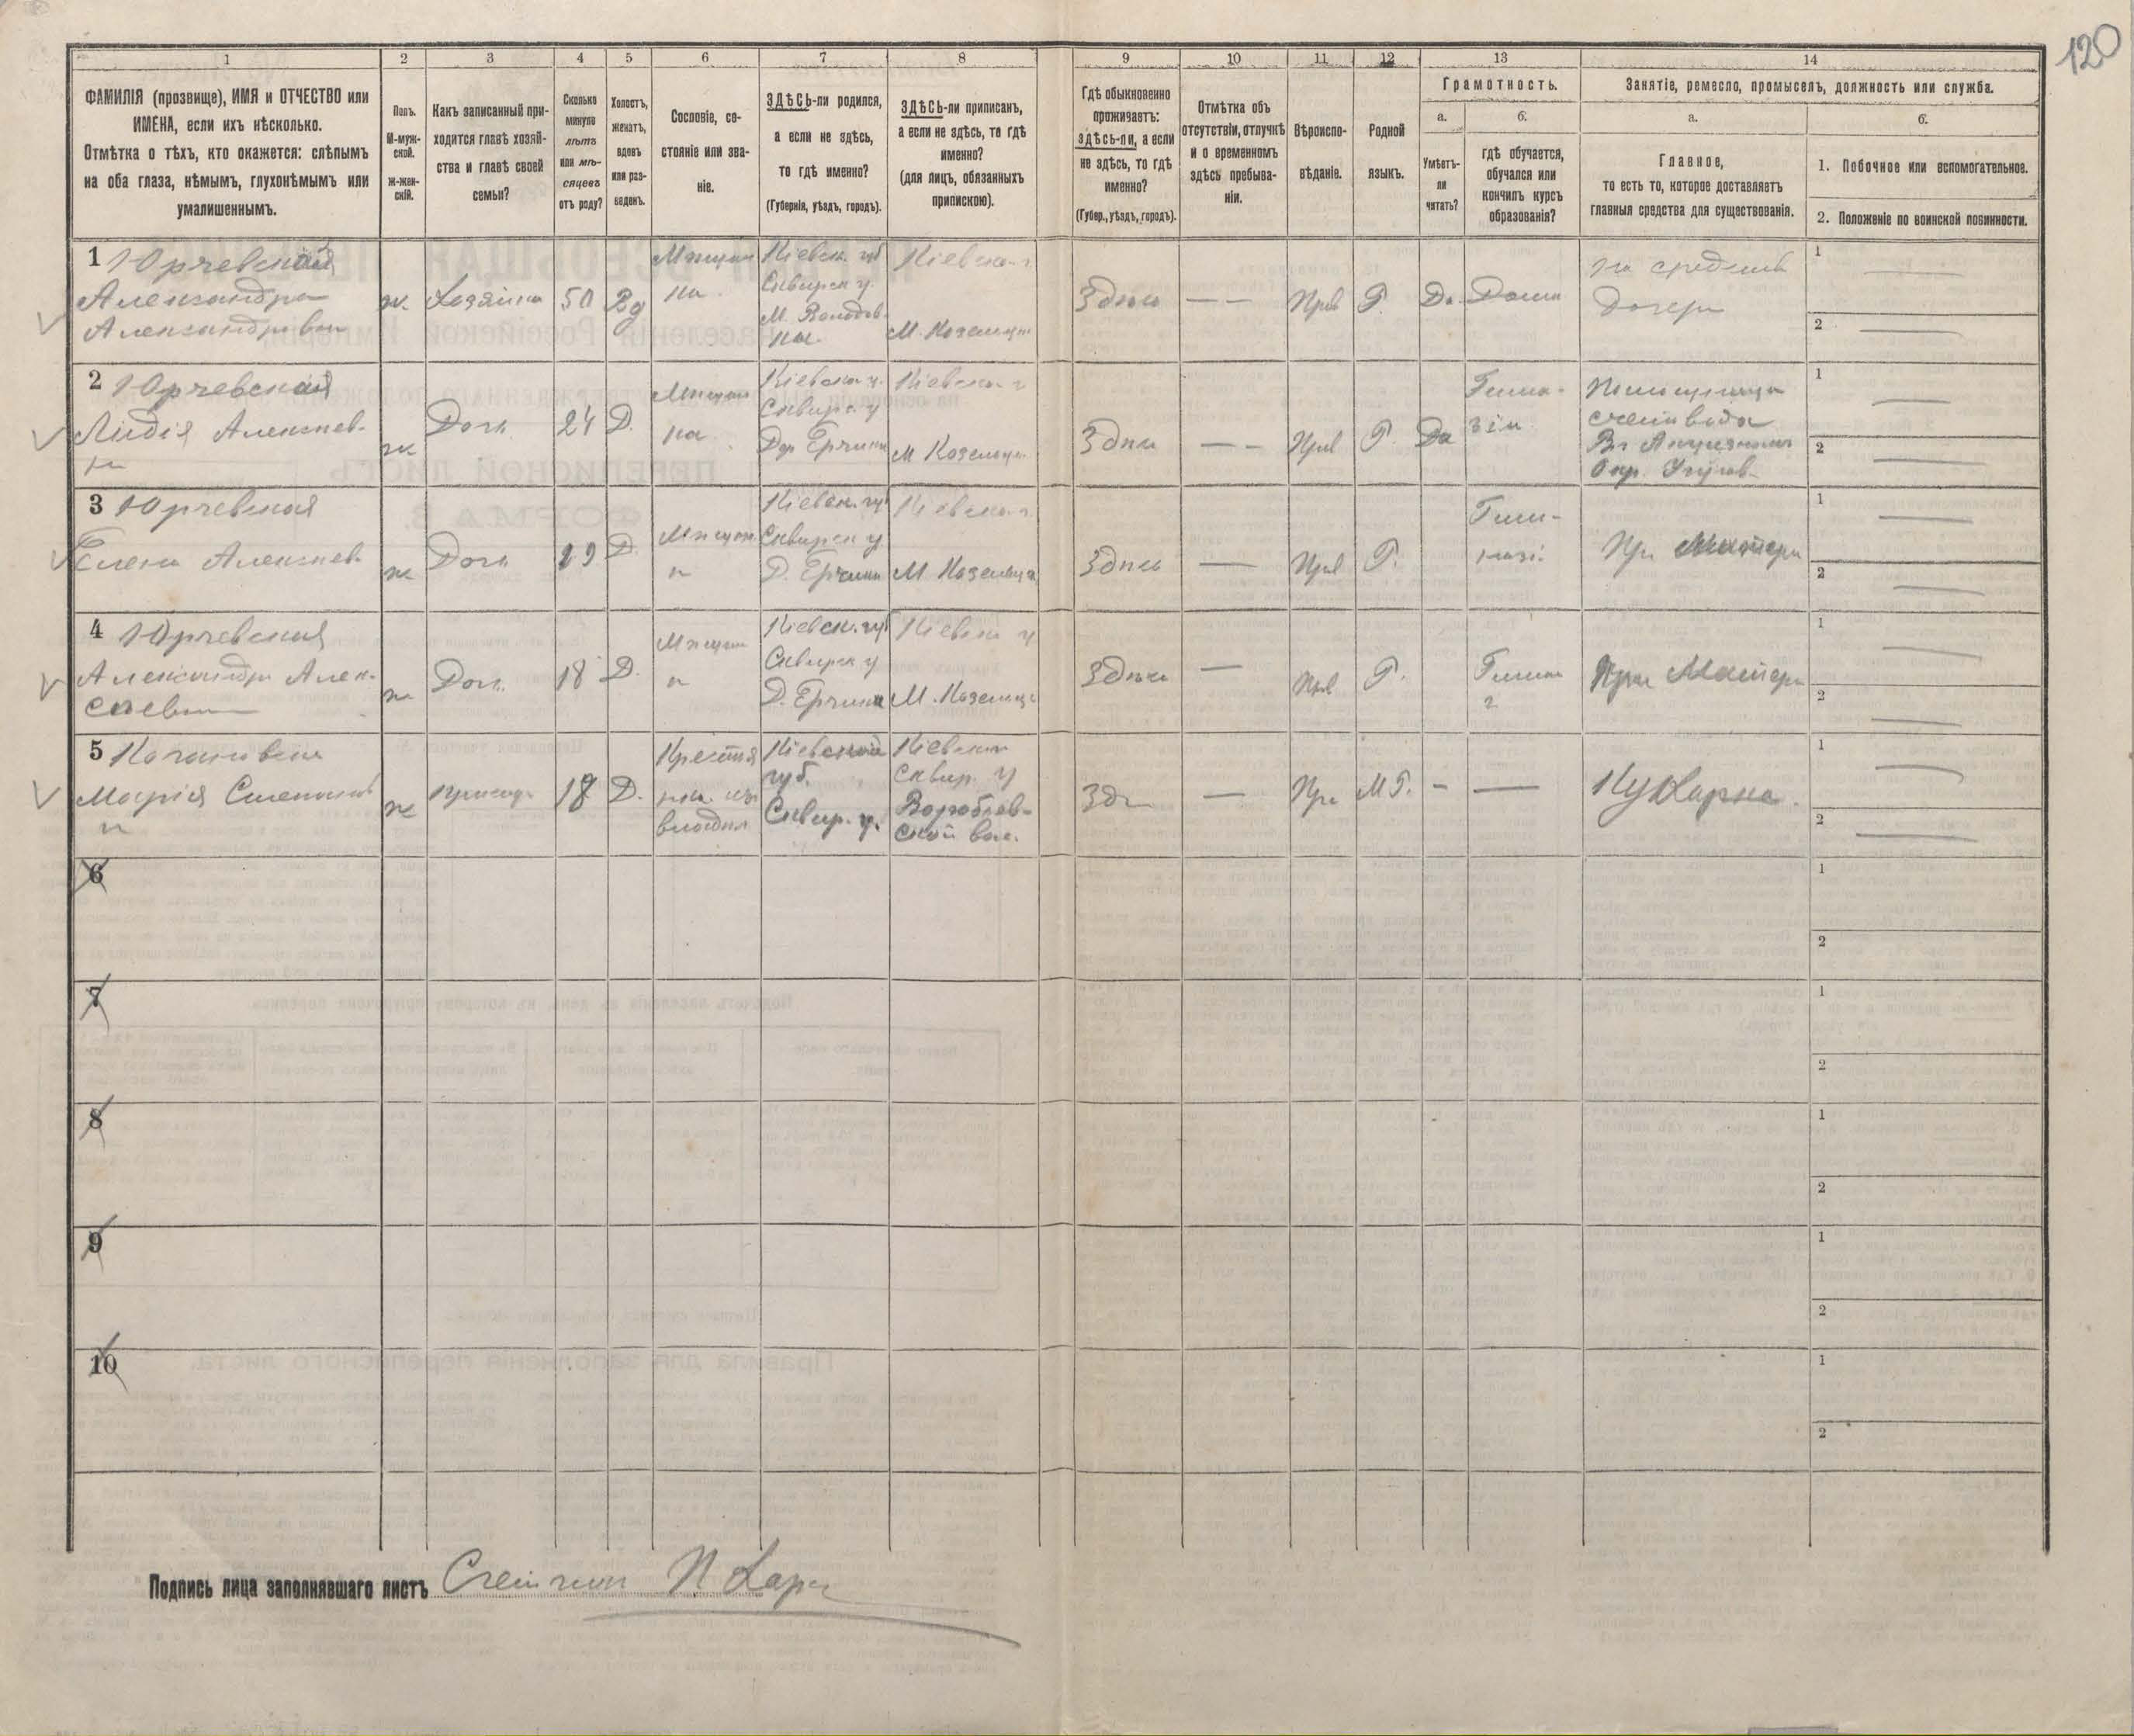 120
1 2 3 4 5 6 7 8 9 10 11 12 13 14
ФАМИЛІЯ (прозвище), ИМЯ и ОТЧЕСТВО или
ИМЕНА, если ихъ нѣсколько.
Отмѣтка о тѣхъ, кто окажется: слѣпымъ
на оба глаза, нѣмымъ, глухонѣмымъ или
умалишеннымъ.
Полъ.
М-муж-
ской.
Ж-жен-
скій.
Какъ записанный при-
ходится главѣ хозяй-
ства и главѣ своей
семьи?
Сколько
минуло
лѣтъ
или мѣ-
сяцевъ
отъ роду?
Холостъ,
женатъ,
вдовъ
или раз-
веденъ.
Сословіе, со-
стояніе или зва-
ніе.
ЗДѢСЬ-ли родился,
а если не здѣсь,
то гдѣ именно?
(Губернія, уѣздъ, городъ).
ЗДѢСЬ-ли приписанъ,
а если не здѣсь, то гдѣ
именно?
(для лицъ, обязанныхъ
припискою).
Гдѣ обыкновенно
проживаетъ:
ЗДѢСЬ-ли, а если
не здѣсь, то гдѣ
именно?
(Губер., уѣздъ, городъ).
Отмѣтка объ
отсутствіи, отлучкѣ
и о временномъ
здѣсь пребыва-
ніи.
Вѣроиспо-
вѣданіе.
Родной
языкъ.
Грамотность.
а.
Умѣетъ-
ли
читать?
б.
гдѣ обучается,
обучался или
кончилъ курсъ
образованія?
Занятіе, ремесло, промыселъ, должность или служба.
а.
Главное,
то есть то, которое доставляетъ
главныя средства для существованія.
б.
1. Побочное или вспомогательное.
2. Положеніе по воинской повинности.
1 Юрчевская
Александра
Александровн
ж Хозяйка 50 Вд
Мѣщан
ка
Кіевск. губ
Сквирск у.
М. Володар-
ка.
Кіевск. г
Здѣсь — — Прав Р. Да. Дома
на средства
дочери
1 —
2 —
2 Юрчевская
Лидія Алексѣев-
на
ж Дочь 24 Д.
Мѣщан
ка
Кіевск. г.
Сквирс. у
Дер Ерчики
Кіевск. г
Здѣсь — — Прав Р. Да
Гимна-
зіи
Помощница
счетовода
Въ Акцизномъ
Окр. Управ-
1 —
2 —
3 Юрчевская
Елена Алексѣев-
ж Дочь 19 Д.
Мѣщан
к
Кіевск. губ
Сквирск у.
Д. Ерчики
Кіевск. г
Здѣсь — Прав Р.
Гим-
назі.
При Матери
1 —
2 —
4 Юрчевская
Александра Алек-
сѣевн
ж Дочь 18 Д.
Мѣщан
к
Кіевск. губ
Сквирск у
Д. Ерчики
Кіевск г
Здѣсь — Прав Р.
При Матери
1 —
2 —
5
Марія Степанов
н
ж Прислуга 18 Д.
Крестья
нка из
Кіевской
губ.
Сквир. у.
Кіевск
Сквир. у
вол.
Зд — Пра М Р. — —
Кухарка.
1 —
2 —
6
1
2
7
1
2
8
1
2
9
1
2
10
1
2
Подпись лица заполнявшаго листъ Счетчик